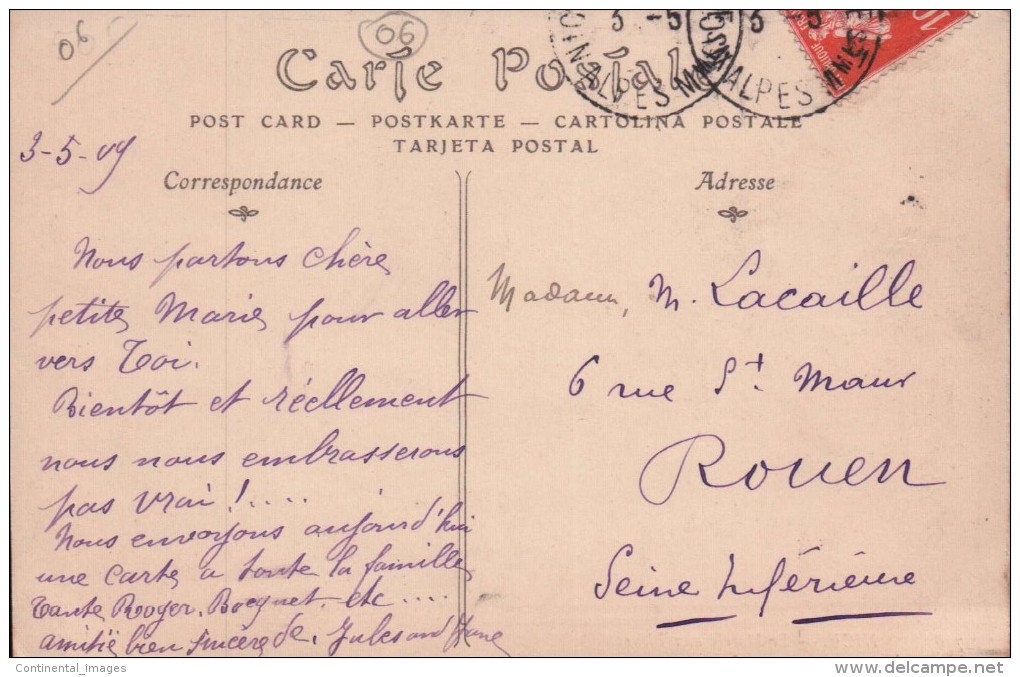 06
06
Carte Postale
POST CARD — POSTKARTE — CARTOLINA POSTALE
TARJETA POSTAL
3-5-09
Correspondance
Nous partons Chère
petite Marie pour aller
vers Toi.
Bientôt et réellement
nous nous embrasserons
pas vrai !....
Nous envoyons aujourd'hui
une carte a toute la famille
Tante Roger, Bocquet, etc ....
amitié bien sincère de, Jules and Jane
Adresse
Madame, M. Lacaille
6 rue St. Maur
Rouen
Seine Inférieure
3 -5
ALPES
3
ALPES
10
Continental_images
delcampe.net